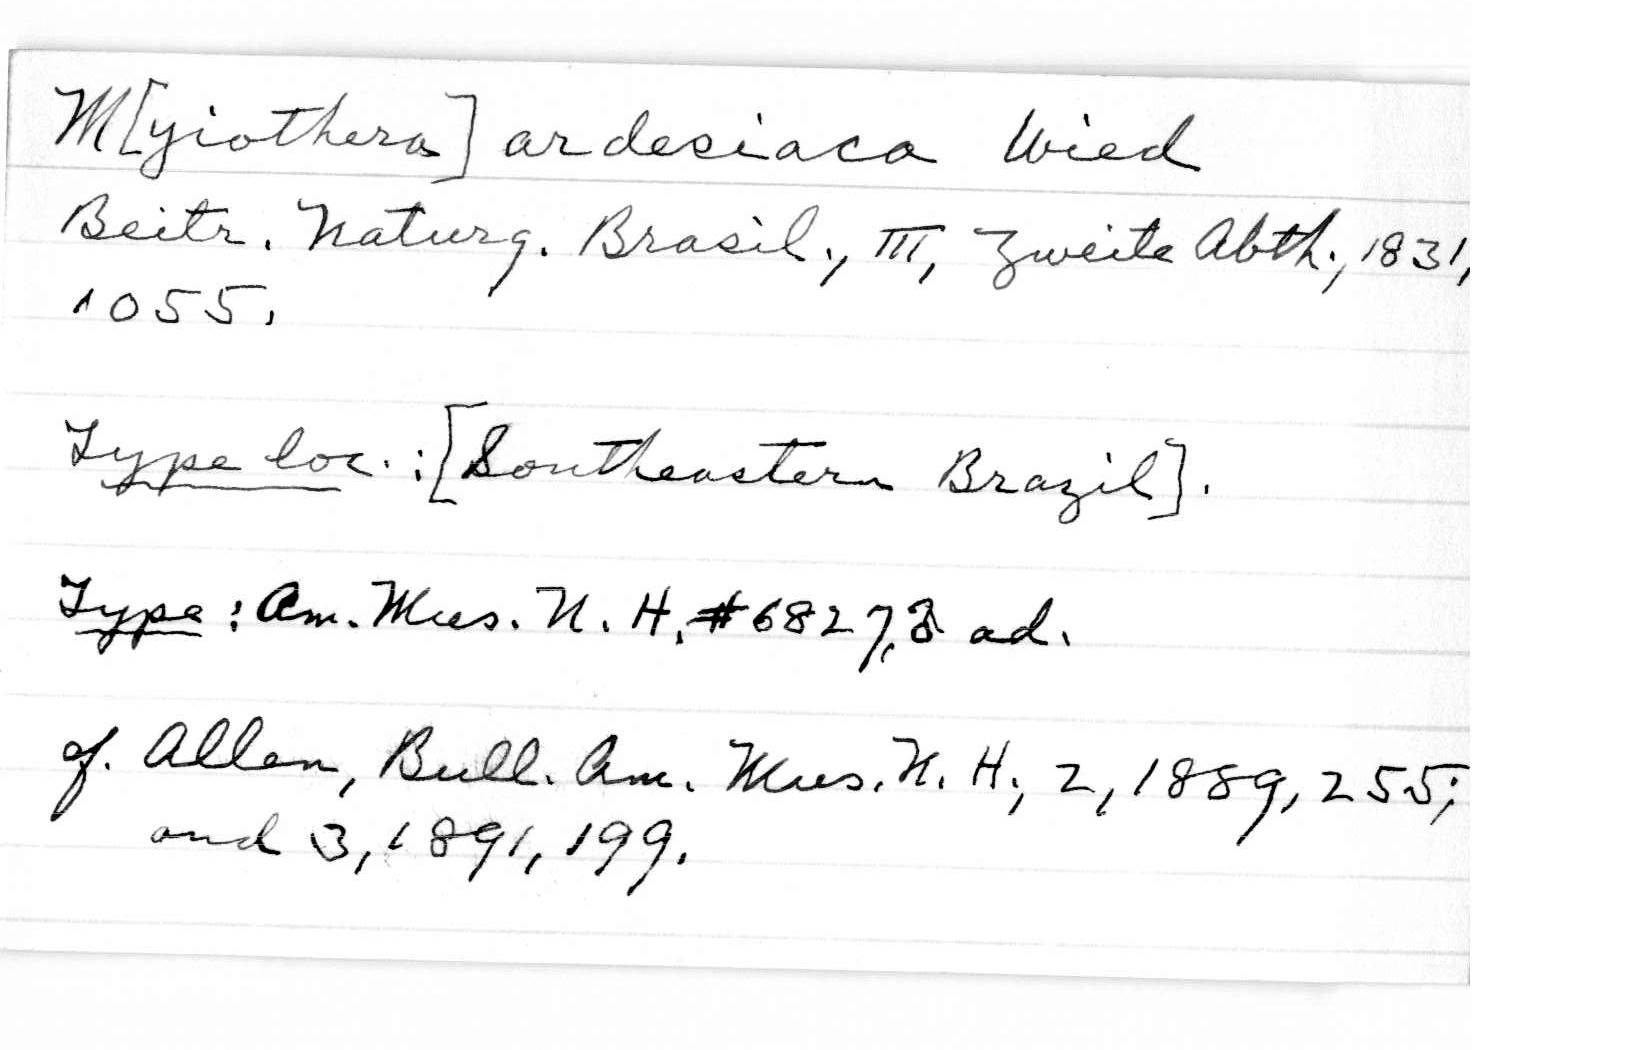 M[yiothera] ardesiaca Wied
Beitr. Naturg. Brasil., III, Zweite Abth., 1831,
1055.
Type loc.: [Southeastern Brazil].
Type: Am. Mus. N. H. #6827, ♂ ad.
cf. Allen, Bull. Am. Mus. N. H., 2, 1889, 255;
and 3, 1891, 199.